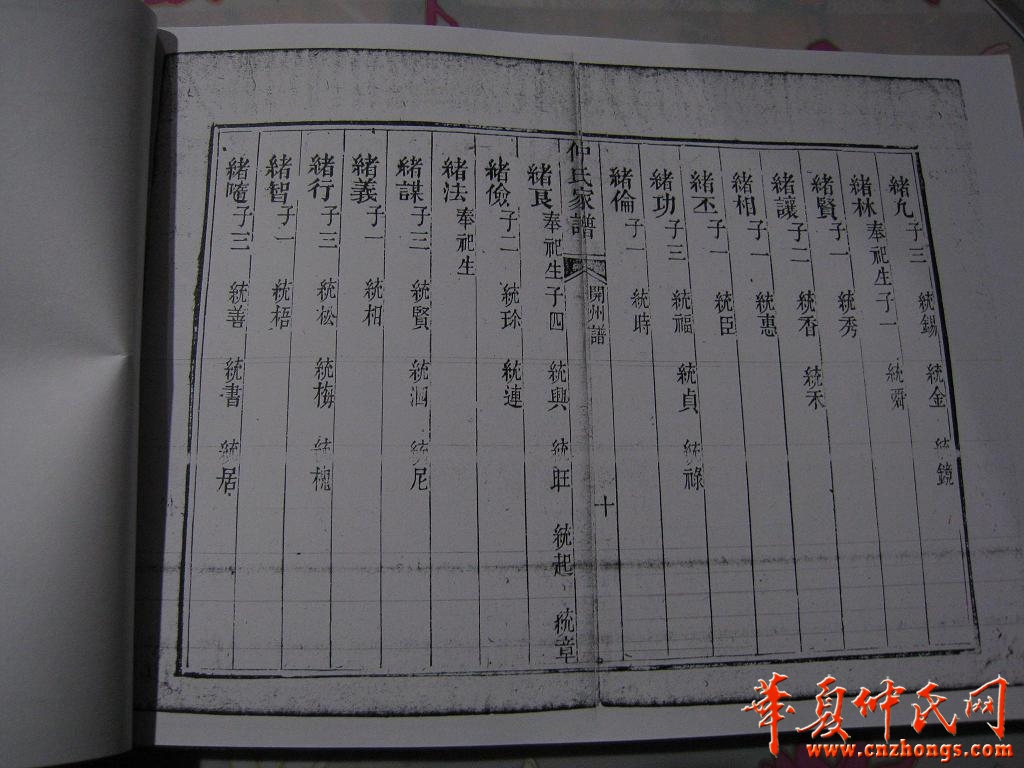 緒九 子三 統錫 統金 統鏡
緒林 奉祀生子一 統舜
緒賢 子一 統秀
緒讓 子二 統香 統禾
緒相 子一 統惠
緒丕 子一 統臣
緒功 子三 統福 統貞 統祿
緒倫 子一 統時
仲氏家譜 開州譜 十
緒良 奉祀生子四 統興 統旺 統起 統章
緒儉 子二 統珍 統連
緒法 奉祀生
緒謀 子三 統賢 統泗 統尼
緒義 子一 統相
緒行 子三 統松 統梅 統槐
緒智 子一 統梧
緒隨 子三 統善 統書 統居
華夏仲氏网
www.cnzhongs.com